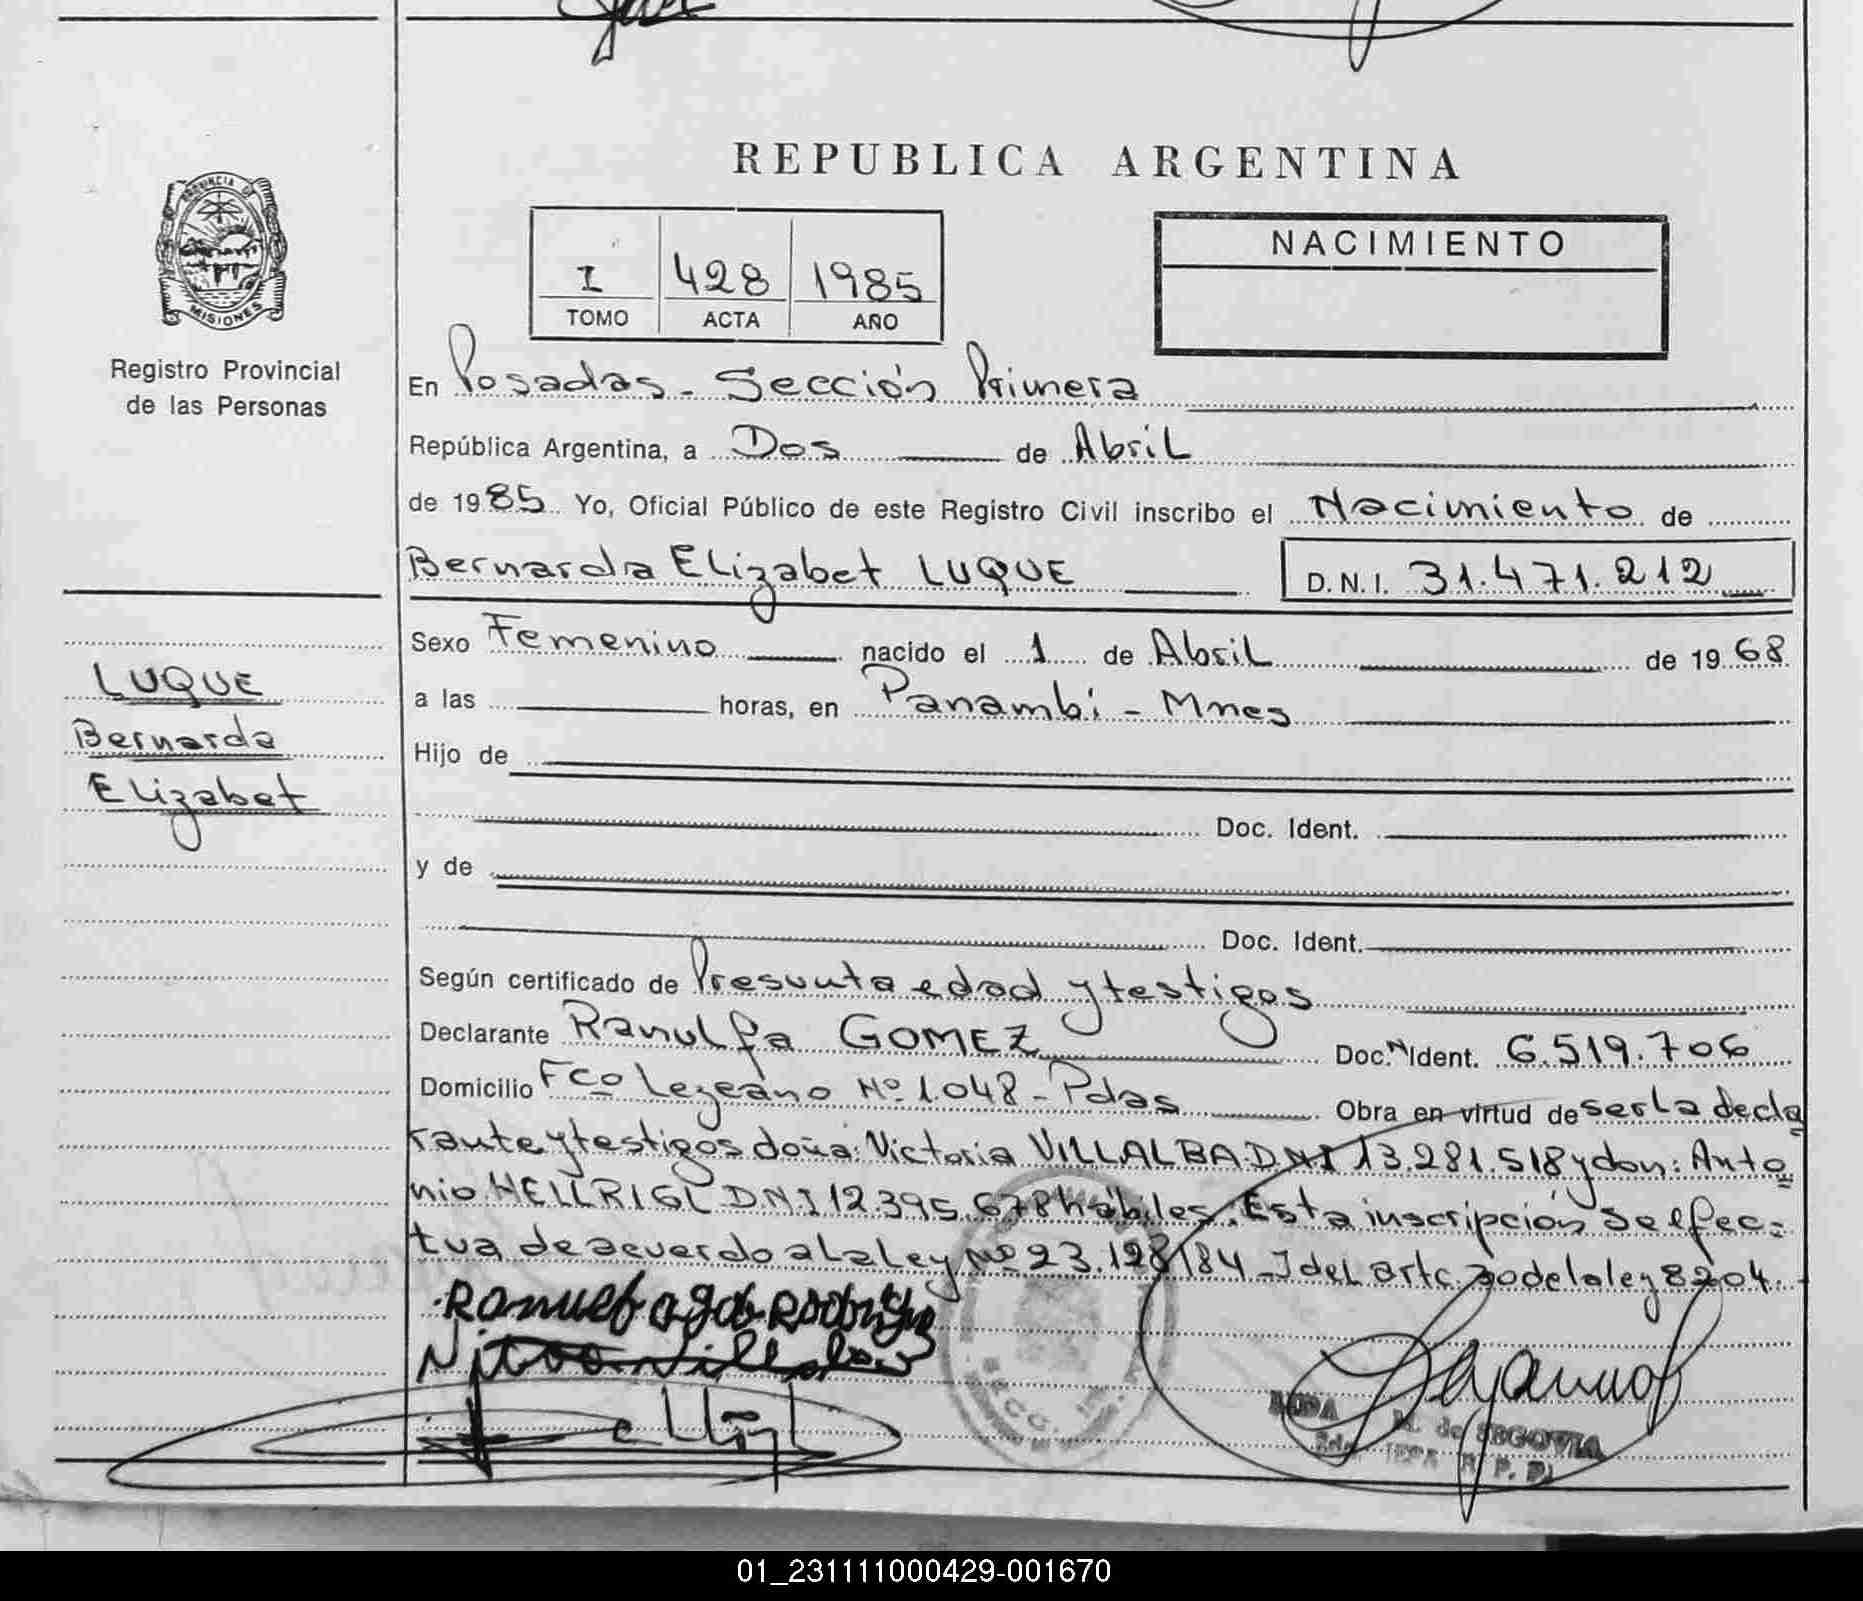 REPUBLICA ARGENTINA
PROVINCIA DE
MISIONES
Registro Provincial
de las Personas
I 428 1985
TOMO ACTA AÑO
NACIMIENTO
En Posadas - Sección Primera
República Argentina, a Dos de Abril
de 1985 Yo, Oficial Público de este Registro Civil inscribo el Nacimiento de
Bernarda Elizabet LUQUE D.N.I. 31.471.212
LUQUE
Bernarda
Elizabet
Sexo Femenino nacido el 1 de Abril de 1968
a las horas, en Panambi - Mnes
Hijo de
Doc. Ident.
y de
Doc. Ident.
Según certificado de Presunta edad y testigos
Declarante Ranulfa GOMEZ Doc. Ident. 6.519.706
Domicilio Fco Lezcano Nº 1.048 - Pdas Obra en virtud de ser la decla
rante y testigos doña: Victoria VILLALBA DNI 13.281.518 y don: Anto
nio HELLRIGL DNI 12.395.678 hábiles. Esta inscripción se efec=
tua de acuerdo a la ley Nº 23.128/84 - J del artc. 30 de la ley 8204.
M. de SEGOVIA
01_231111000429-001670